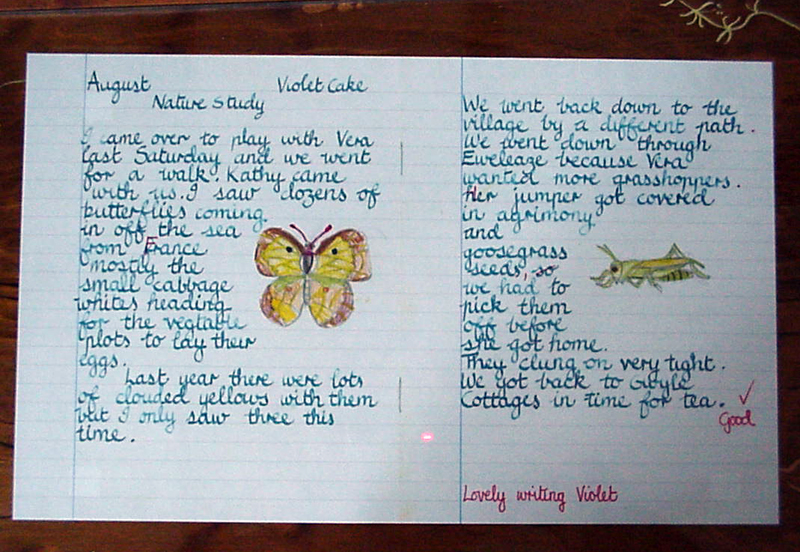 August Violet Cake
Nature Study
I came over to play with Vera
last Saturday and we went
for a walk. Kathy came
with us. I saw dozens of
butterflies coming
in off the sea
from France
mostly the
small cabbage
whites heading
for the vegtable
plots to lay their
eggs.
Last year there were lots
of clouded yellows with them
but I only saw three this
time.
We went back down to the
village by a different path.
We went down through
Eweleage because Vera
wanted more grasshoppers.
Her jumper got covered
in agrimony
and
goosegrass
seeds, so
we had to
pick them
off before
she got home.
They clung on very tight.
We got back to Gwyle
Cottages in time for tea. ✓
Good
Lovely writing Violet